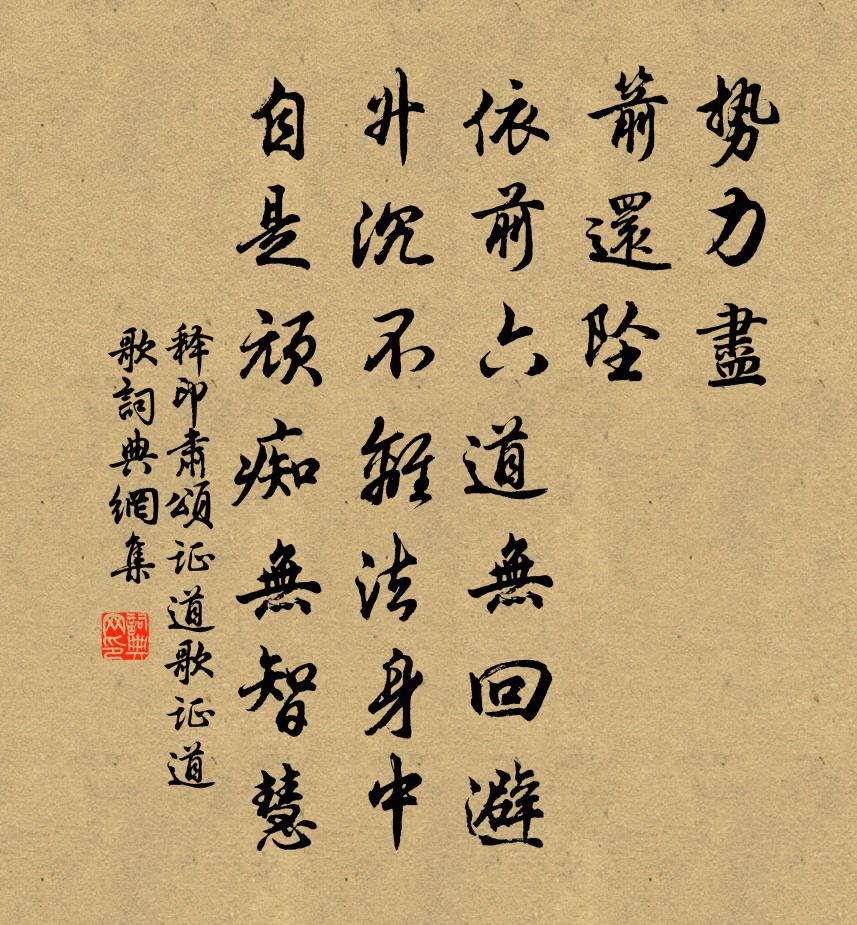 勢力盡
箭還墜
依前六道無回避
升沉不離法身中
自是頑痴無智慧
释印肃頌证道歌证道
歌詞典網集
詞典网印